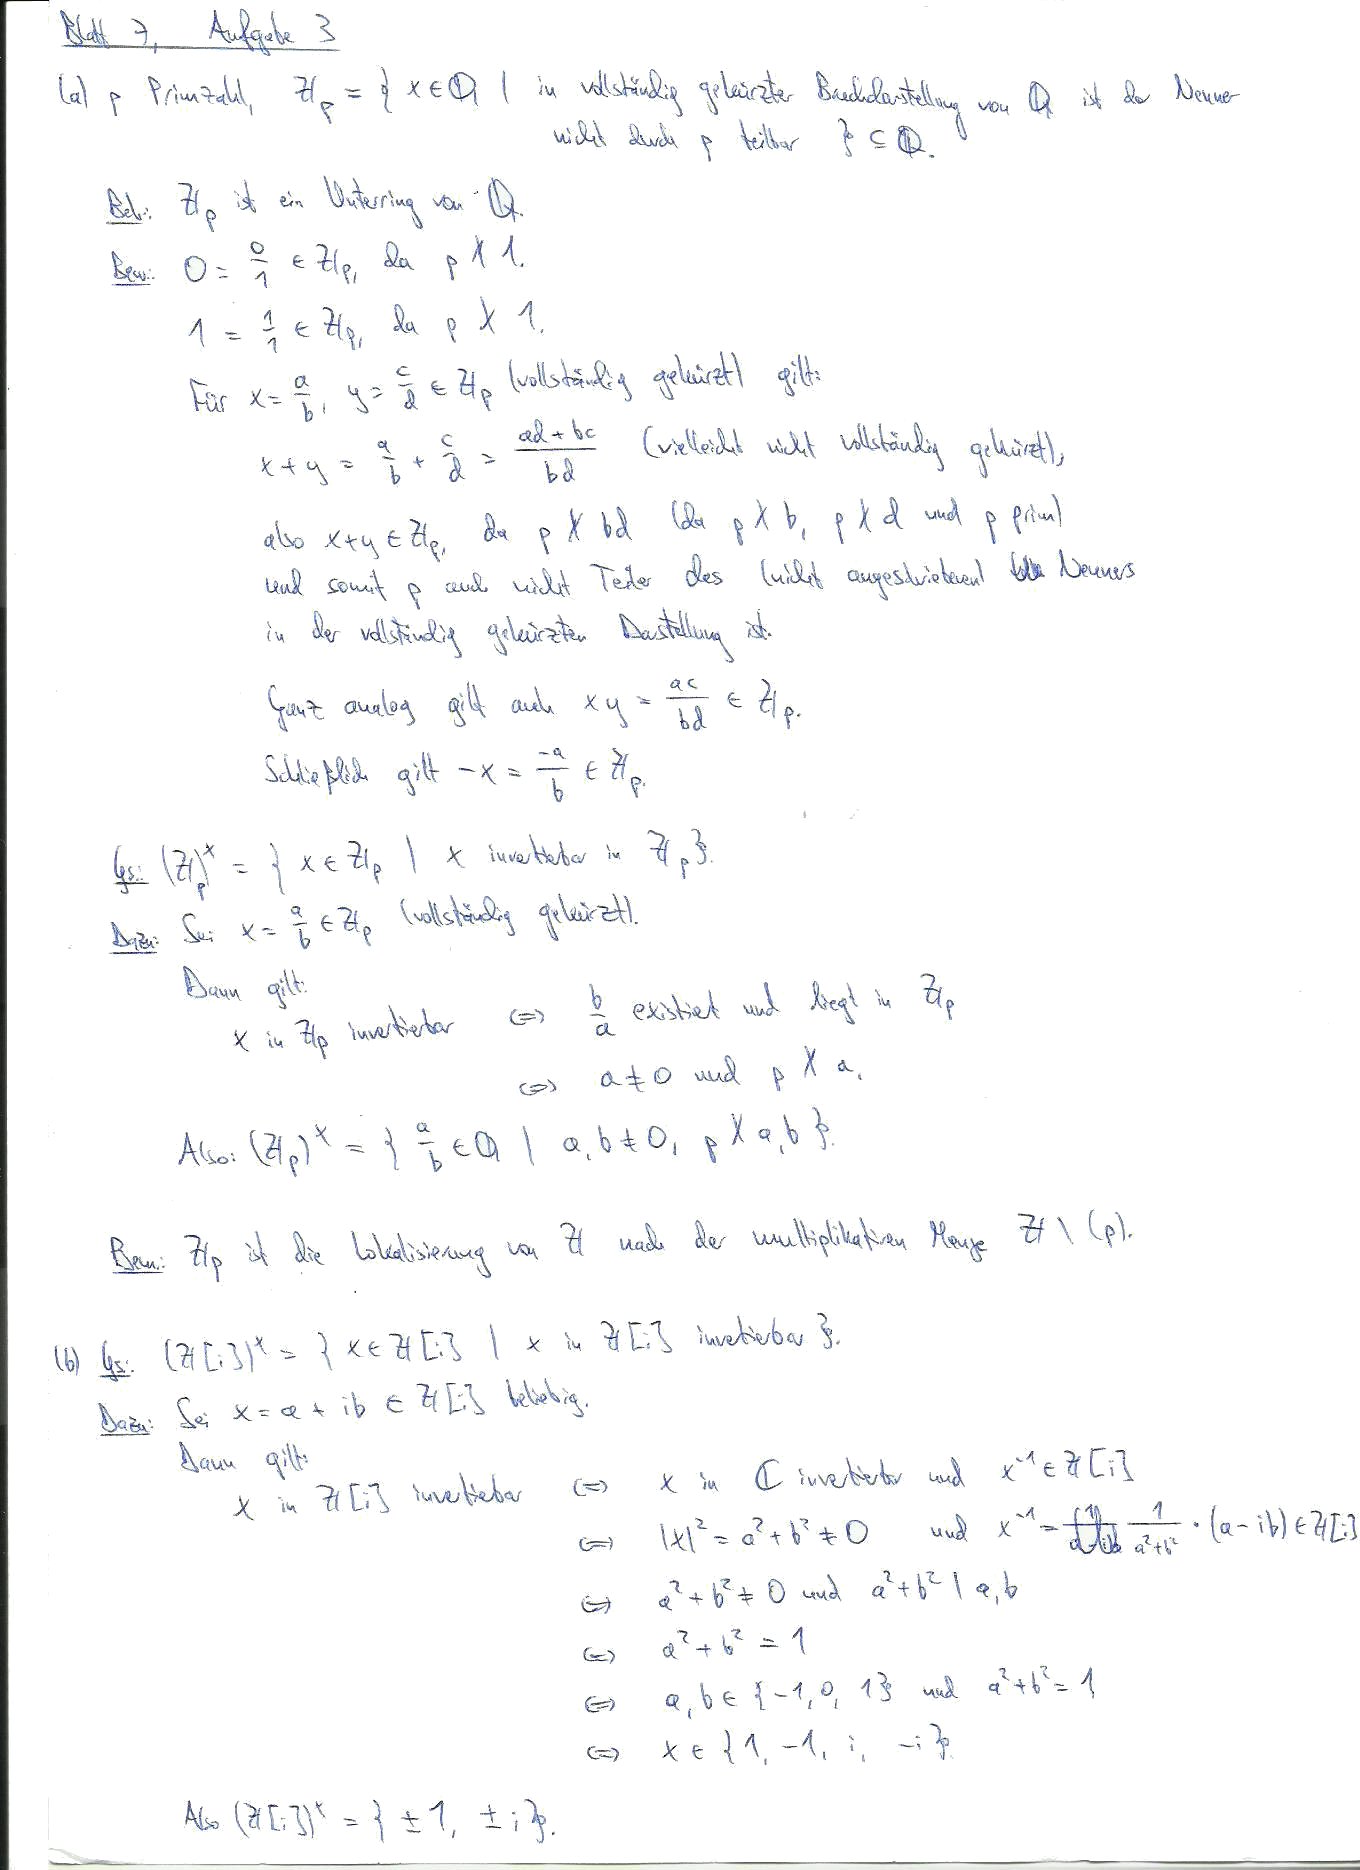 Blatt 7, Aufgabe 3
(a) p Primzahl, ℤ_p = { x ∈ ℚ | in vollständig gekürzter Bruchdarstellung von ℚ ist der Nenner
nicht durch p teilbar } ⊆ ℚ.
Beh.: ℤ_p ist ein Unterring von ℚ.
Bew.: 0 = 0/1 ∈ ℤ_p, da p ∤ 1.
1 = 1/1 ∈ ℤ_p, da p ∤ 1.
Für x = a/b, y = c/d ∈ ℤ_p (vollständig gekürzt) gilt:
x + y = a/b + c/d = (ad + bc)/(bd) (vielleicht nicht vollständig gekürzt),
also x+y ∈ ℤ_p, da p ∤ bd (da p ∤ b, p ∤ d und p prim)
und somit p auch nicht Teiler des (nicht angeschriebenen) Nenners
in der vollständig gekürzten Darstellung ist.
Ganz analog gilt auch xy = ac/bd ∈ ℤ_p.
Schließlich gilt -x = -a/b ∈ ℤ_p.
Gs.: (ℤ_p)^× = { x ∈ ℤ_p | x invertierbar in ℤ_p }.
Dazu: Sei x = a/b ∈ ℤ_p (vollständig gekürzt).
Dann gilt:
x in ℤ_p invertierbar ⇔ b/a existiert und liegt in ℤ_p
⇔ a ≠ 0 und p ∤ a.
Also: (ℤ_p)^× = { a/b ∈ ℚ | a, b ≠ 0, p ∤ a, b }.
Bem.: ℤ_p ist die Lokalisierung von ℤ nach der multiplikativen Menge ℤ \ (p).
(b) Gs.: (ℤ[i])^× = { x ∈ ℤ[i] | x in ℤ[i] invertierbar }.
Dazu: Sei x = a + ib ∈ ℤ[i] beliebig.
Dann gilt:
x in ℤ[i] invertierbar ⇔ x in ℂ invertierbar und x⁻¹ ∈ ℤ[i]
⇔ |x|² = a² + b² ≠ 0 und x⁻¹ = 1/(a²+b²) · (a - ib) ∈ ℤ[i]
⇔ a² + b² ≠ 0 und a² + b² | a, b
⇔ a² + b² = 1
⇔ a, b ∈ {-1, 0, 1} und a² + b² = 1
⇔ x ∈ {1, -1, i, -i}.
Also (ℤ[i])^× = { ±1, ±i }.